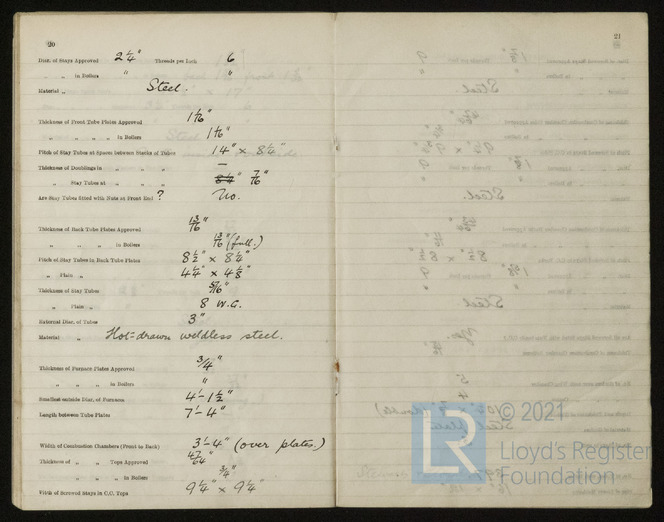 20
Diam. of Stays Approved 2¼" Threads per Inch 6
" " in Boilers " "
Material " Steel.
Thickness of Front Tube Plates Approved 1 1/16"
" " " " in Boilers 1 1/16"
Pitch of Stay Tubes at Spaces between Stacks of Tubes 14" × 8¼"
Thickness of Doublings in " " " —
" Stay Tubes at " " " 7/16"
Are Stay Tubes fitted with Nuts at Front End? No.
Thickness of Back Tube Plates Approved 13/16"
" " " in Boilers 13/16" (full.)
Pitch of Stay Tubes in Back Tube Plates 8½" × 8¼"
" Plain " 4¼" × 4⅛"
Thickness of Stay Tubes 5/16"
" Plain " 8 W.G.
External Diar. of Tubes 3"
Material " Hot-drawn weldless steel.
Thickness of Furnace Plates Approved ¾"
" " " in Boilers "
Smallest outside Diar. of Furnaces 4'-1½"
Length between Tube Plates 7'-4"
Width of Combustion Chambers (Front to Back) 3'-4" (over plates.)
Thickness of " " Tops Approved 47/64"
" " " " in Boilers ¾"
Pitch of Screwed Stays in C.C. Tops 9¼" × 9¼"
21
© 2021
LR
Lloyd's Register
Foundation